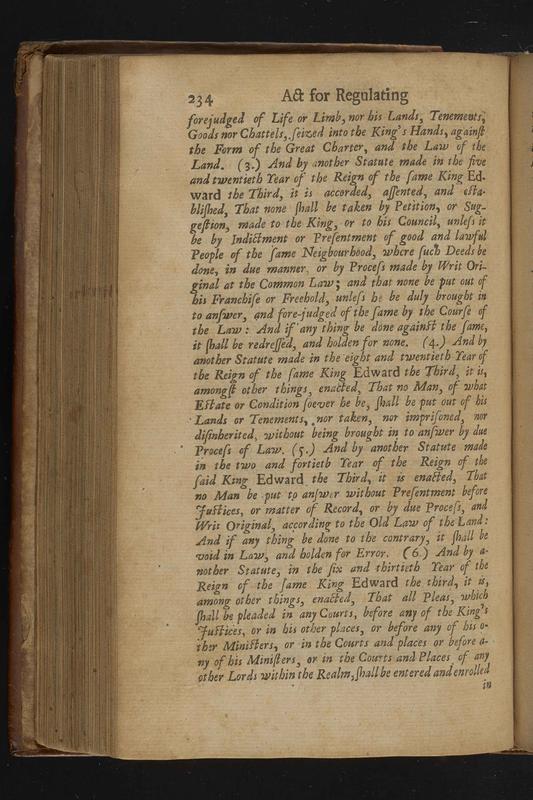 234 Act for Regulating
forejudged of Life or Limb, nor his Lands, Tenements,
Goods nor Chattels, ſeized into the King's Hands, againſt
the Form of the Great Charter, and the Law of the
Land. (3.) And by another Statute made in the five
and twentieth Year of the Reign of the ſame King Ed-
ward the Third, it is accorded, aſſented, and eſta-
bliſhed, That none ſhall be taken by Petition, or Sug-
geſtion, made to the King, or to his Council, unleſs it
be by Indictment or Preſentment of good and lawful
People of the ſame Neigbourhood, where ſuch Deeds be
done, in due manner, or by Proceſs made by Writ Ori-
ginal at the Common Law; and that none be put out of
his Franchiſe or Freehold, unleſs he be duly brought in
to anſwer, and fore-judged of the ſame by the Courſe of
the Law: And if any thing be done againſt the ſame,
it ſhall be redreſſed, and holden for none. (4.) And by
another Statute made in the eight and twentieth Year of
the Reign of the ſame King Edward the Third, it is,
amongſt other things, enacted, That no Man, of what
Eſtate or Condition ſoever he be, ſhall be put out of his
Lands or Tenements, nor taken, nor impriſoned, nor
diſinherited, without being brought in to anſwer by due
Proceſs of Law. (5.) And by another Statute made
in the two and fortieth Year of the Reign of the
ſaid King Edward the Third, it is enacted, That
no Man be put to anſwer without Preſentment before
Juſtices, or matter of Record, or by due Proceſs, and
Writ Original, according to the Old Law of the Land:
And if any thing be done to the contrary, it ſhall be
void in Law, and holden for Error. (6.) And by a-
nother Statute, in the ſix and thirtieth Year of the
Reign of the ſame King Edward the third, it is,
among other things, enacted, That all Pleas, which
ſhall be pleaded in any Courts, before any of the King's
Juſtices, or in his other places, or before any of his o-
ther Miniſters, or in the Courts and places or before a-
ny of his Miniſters, or in the Courts and Places of any
other Lords within the Realm, ſhall be entered and enrolled
in